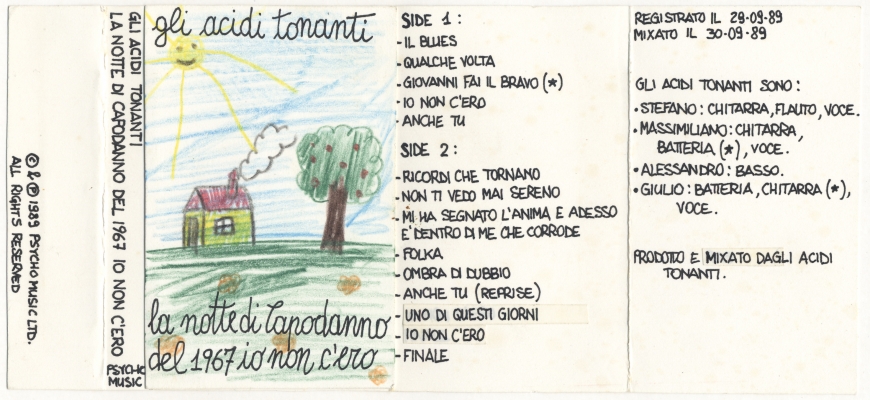 © & ℗ 1989 PSYCHO MUSIC LTD.
ALL RIGHTS RESERVED
GLI ACIDI TONANTI
LA NOTTE DI CAPODANNO DEL 1967 IO NON C'ERO
PSYCHO
MUSIC
gli acidi tonanti
la notte di Capodanno
del 1967 io non c'ero
SIDE 1 :
- IL BLUES
- QUALCHE VOLTA
- GIOVANNI FAI IL BRAVO (*)
- IO NON C'ERO
- ANCHE TU
SIDE 2 :
- RICORDI CHE TORNANO
- NON TI VEDO MAI SERENO
- MI HA SEGNATO L'ANIMA E ADESSO
E' DENTRO DI ME CHE CORRODE
- FOLKA
- OMBRA DI DUBBIO
- ANCHE TU (REPRISE)
- UNO DI QUESTI GIORNI
- IO NON C'ERO
- FINALE
REGISTRATO IL 29-09-89
MIXATO IL 30-09-89
GLI ACIDI TONANTI SONO :
• STEFANO : CHITARRA, FLAUTO, VOCE.
• MASSIMILIANO : CHITARRA,
BATTERIA (*), VOCE.
• ALESSANDRO : BASSO.
• GIULIO : BATTERIA, CHITARRA (*),
VOCE.
PRODOTTO E MIXATO DAGLI ACIDI
TONANTI.